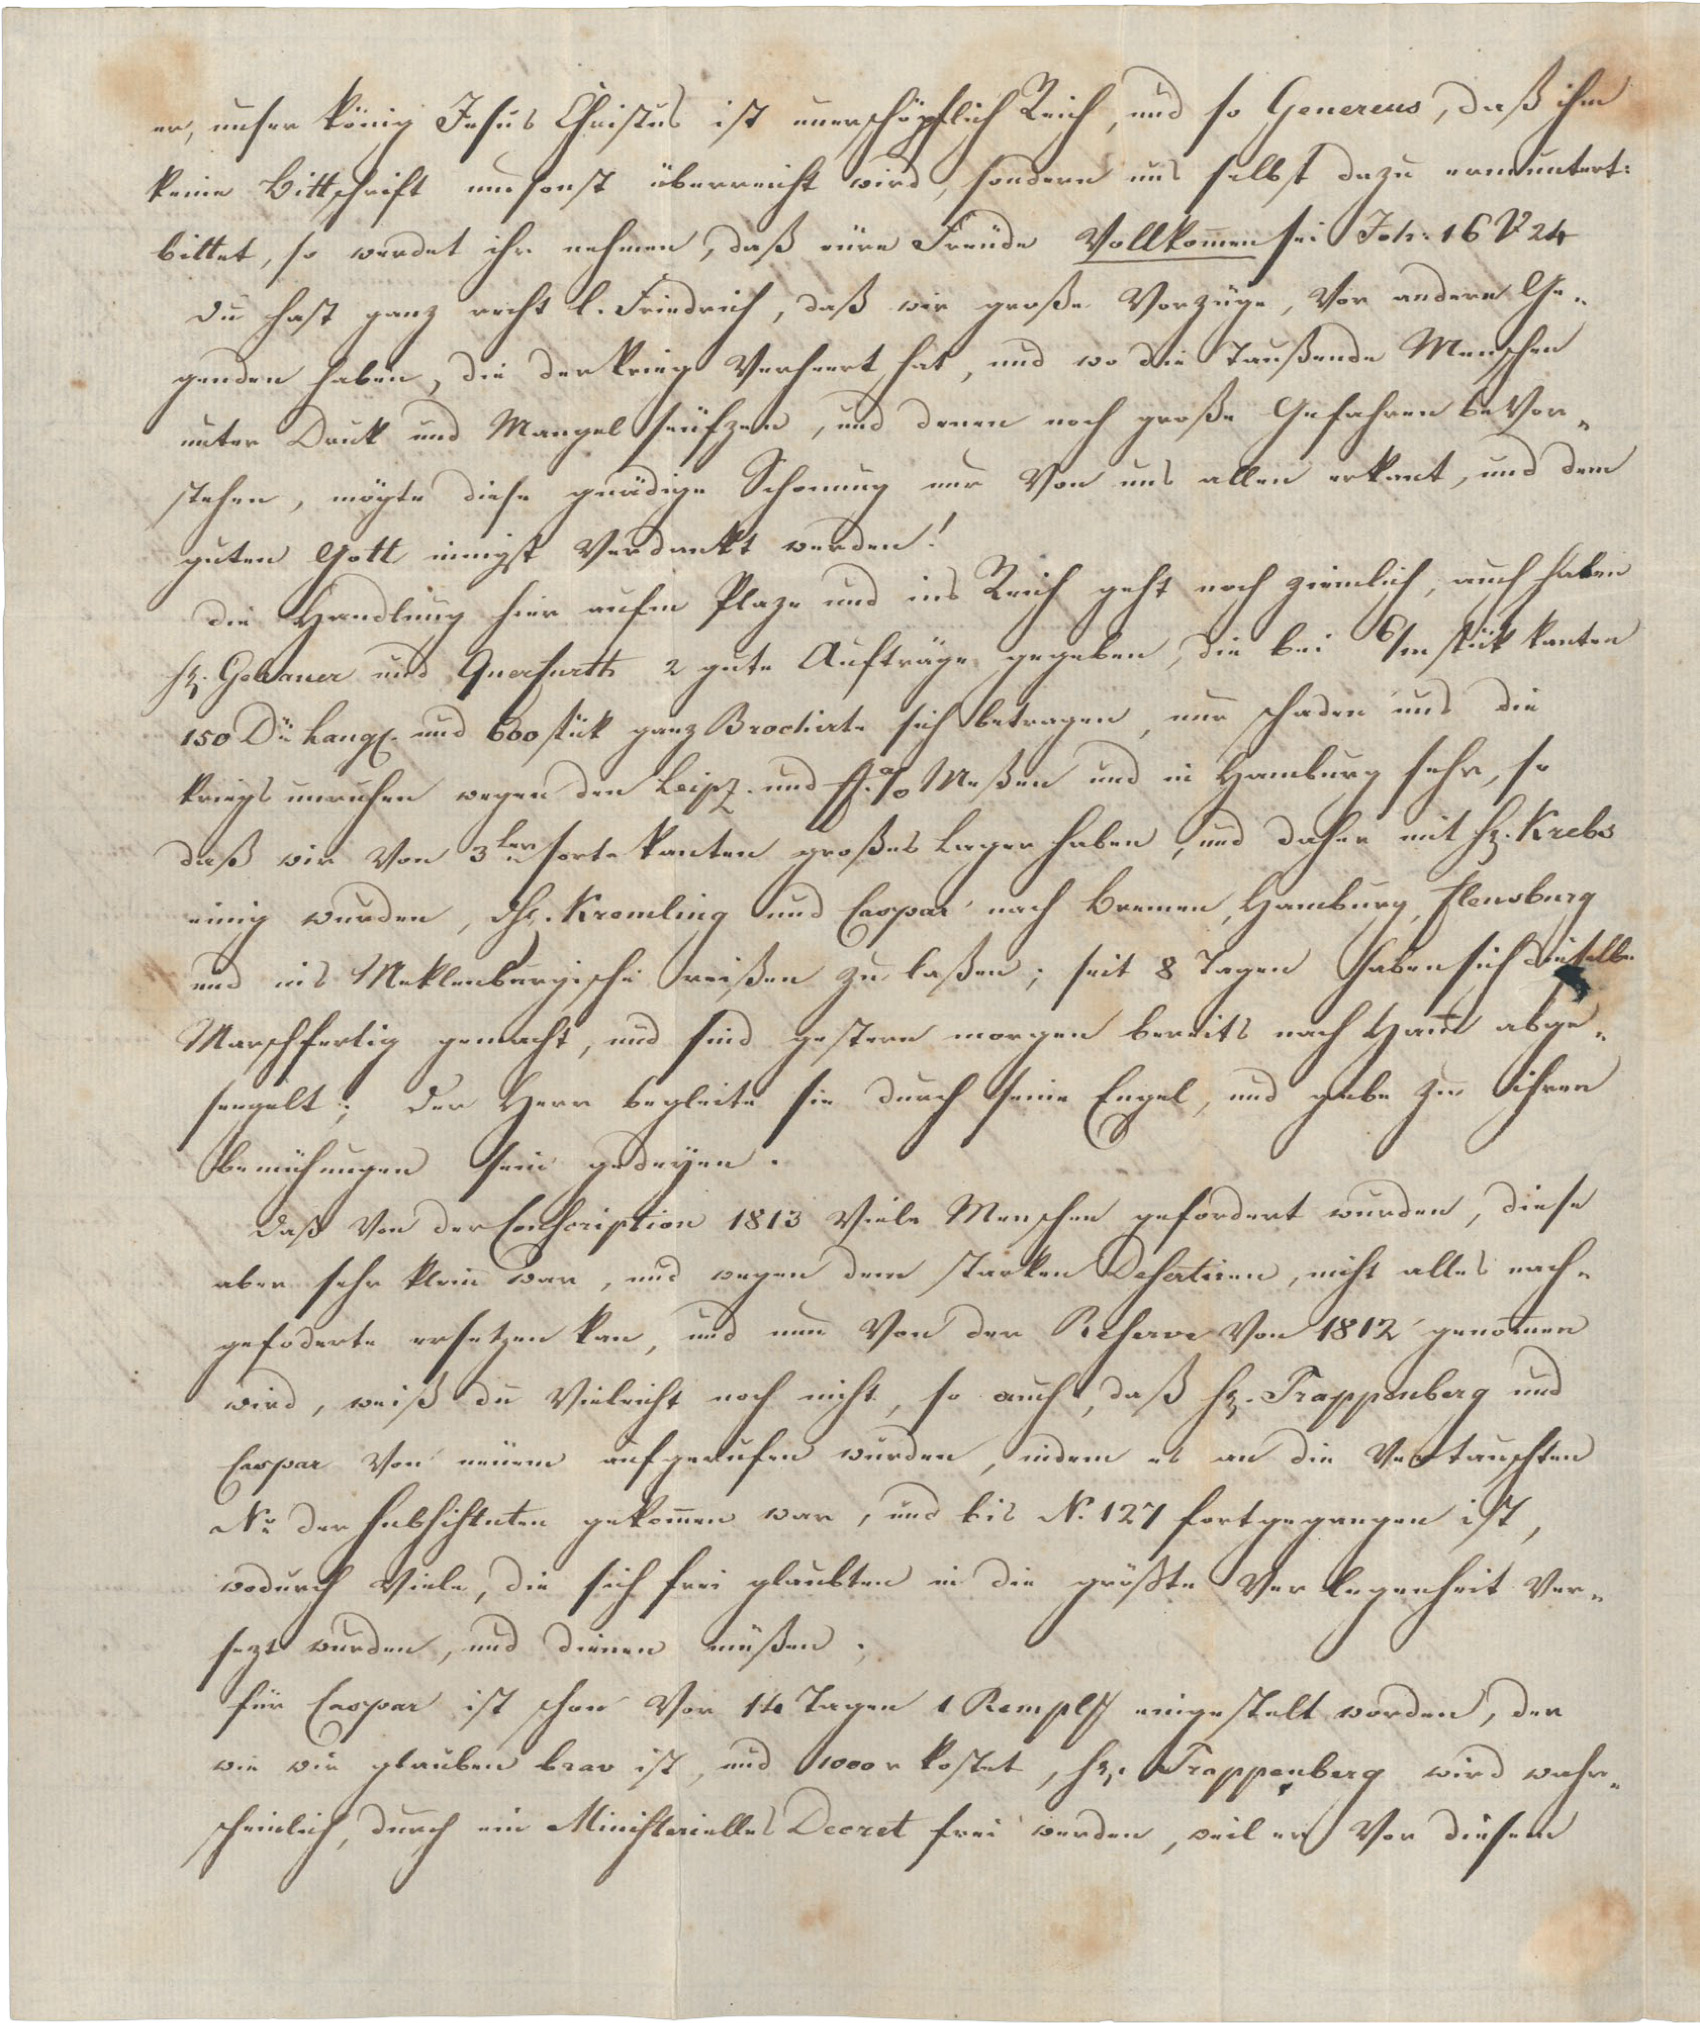 er, unser König Jesus Christus ist unerschöpflich Reich, und so Genereus, daß ihm
keine Bittschrift umsonst überreicht wird, sondern uns selbst dazu ermuntert:
bittet, so werdet ihr nehmen, daß eüre Freüde Vollkom̄en sei Joh: 16 V 24
Du hast ganz recht l. Friedrich, daß wir große Vorzüge, Vor andern Ge„
genden haben, die der Krieg Verheert hat, und wo die Taußende Menschen
unter Druk und Mangel seüfzen, und denen noch große Gefahren beVor„
stehen, mögte diese gnädige Schonung nur Von uns allen erkant, und dem
guten Gott innigst Verdankt werden!
Die Handlung hier aufm Plaze und ins Reich geht noch ziemlich, auch haben
H. Gebauer und Querfurth 2 gute Aufträge gegeben, die bei 6/m stük Kanten
150 Dü Langf. und 600 stük ganz Brochirte sich betragen, nur schaden uns die
Kriegs unruhen wegen den Leipz. und ff. a/o Meßen und in Hamburg sehr, so
daß wir Von 3ter sorte Kanten großes Lager haben, und daher mit H. Krebs
einig wurden, H. Kromling und Caspar nach Bremen, Hamburg, Flensburg
und ins Meklenburgische reißen zu laßen; seit 8 Tagen haben sich dieselbe
Marschfertig gemacht, und sind gestern morgen bereits nach Ham̄ abge„
seegelt; Der Herr begleite sie durch seine Engel, und gebe zu ihren
bemühungen sein gedeÿen.
Daß Von der Conscription 1813 Viele Menschen gefordert wurden, diese
aber sehr klein war, und wegen dem starken Desertiren, nicht alles nach„
gefoderte ersetzen kan, und nun Von der Reserve Von 1812 genom̄en
wird, weiß du Vieleicht noch nicht, so auch, daß H. Trappenberg und
Caspar Von neüem aufgerufen wurden, indem es an die Vertauschten
No der Subsistuten gekom̄en war, und bis N. 127 fortgegangen ist,
wodurch Viele, die sich frei glaubten in die größte Verlegenheit Ver„
sezt wurden, und dienen müßen;
für Caspar ist schon Vor 14 Tagen 1 Rempls eingestelt worden, der
wie wir glauben brav ist, und 1000 r kostet, H. Trappenberg wird wahr„
scheinlich, durch ein Ministerielles Decret frei werden, weil er Vor diesem